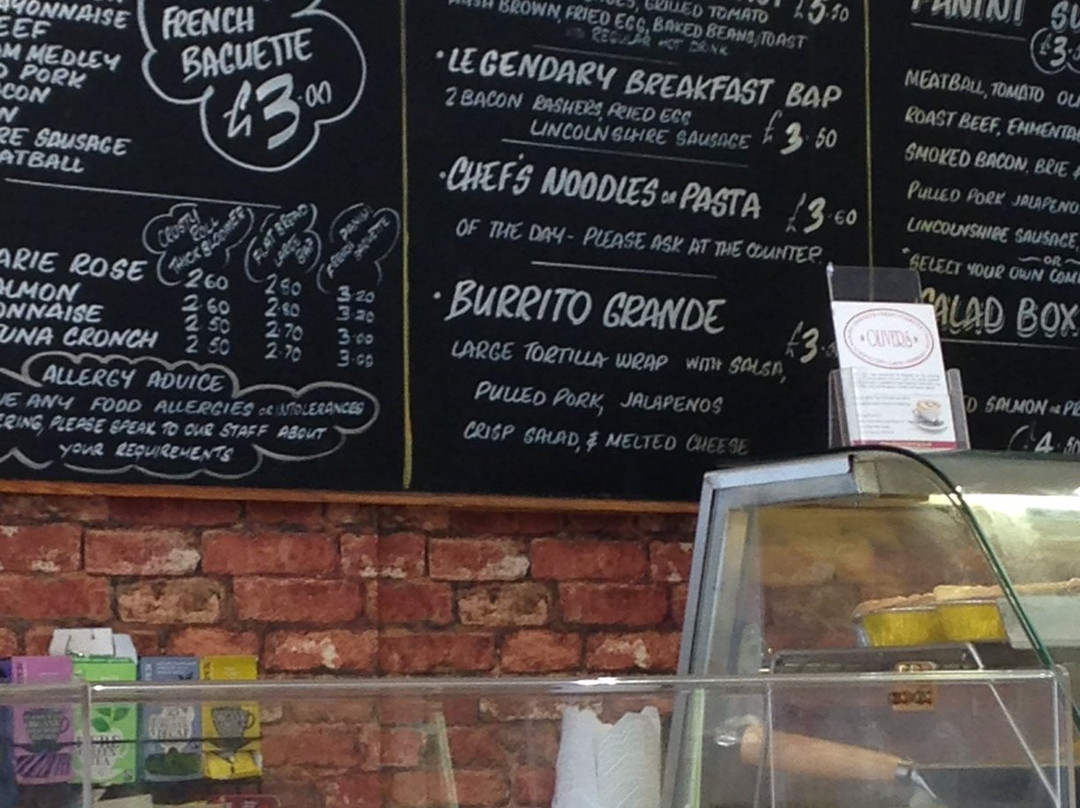 AYONNAISE
EEF
AM MEDLEY
D PORK
ACON
N
RE SAUSAGE
EATBALL
FRENCH
BAGUETTE
£3.00
CRUSTY
ROLL
THICK BLOOMER
FLAT BREAD
LARGE
BAP
PANINI
FRENCH BAGUETTE
ARIE ROSE 2.60 2.80 3.20
ALMON 2.60 2.80 3.20
ONNAISE 2.50 2.70 3.00
UNA CRONCH 2.50 2.70 3.00
ALLERGY ADVICE
VE ANY FOOD ALLERGIES OR INTOLERANCES
ERING, PLEASE SPEAK TO OUR STAFF ABOUT
YOUR REQUIREMENTS
GRILLED TOMATO £5.50
HASH BROWN, FRIED EGG, BAKED BEANS, TOAST
REGULAR HOT DRINK
• LEGENDARY BREAKFAST BAP
2 BACON RASHERS, FRIED EGG
LINCOLNSHIRE SAUSAGE £3.50
• CHEF'S NOODLES OR PASTA £3.60
OF THE DAY - PLEASE ASK AT THE COUNTER
• BURRITO GRANDE
£3.
LARGE TORTILLA WRAP WITH SALSA,
PULLED PORK, JALAPENOS
CRISP SALAD, & MELTED CHEESE
PANINI SU
£3.
MEATBALL, TOMATO OL
ROAST BEEF, EMMENTA
SMOKED BACON, BRIE &
PULLED PORK JALAPENO
LINCOLNSHIRE SAUSAGE,
~OR~
*SELECT YOUR OWN COM
SALAD BOX
D SALMON OR PR
£4.50
OLIVER'S